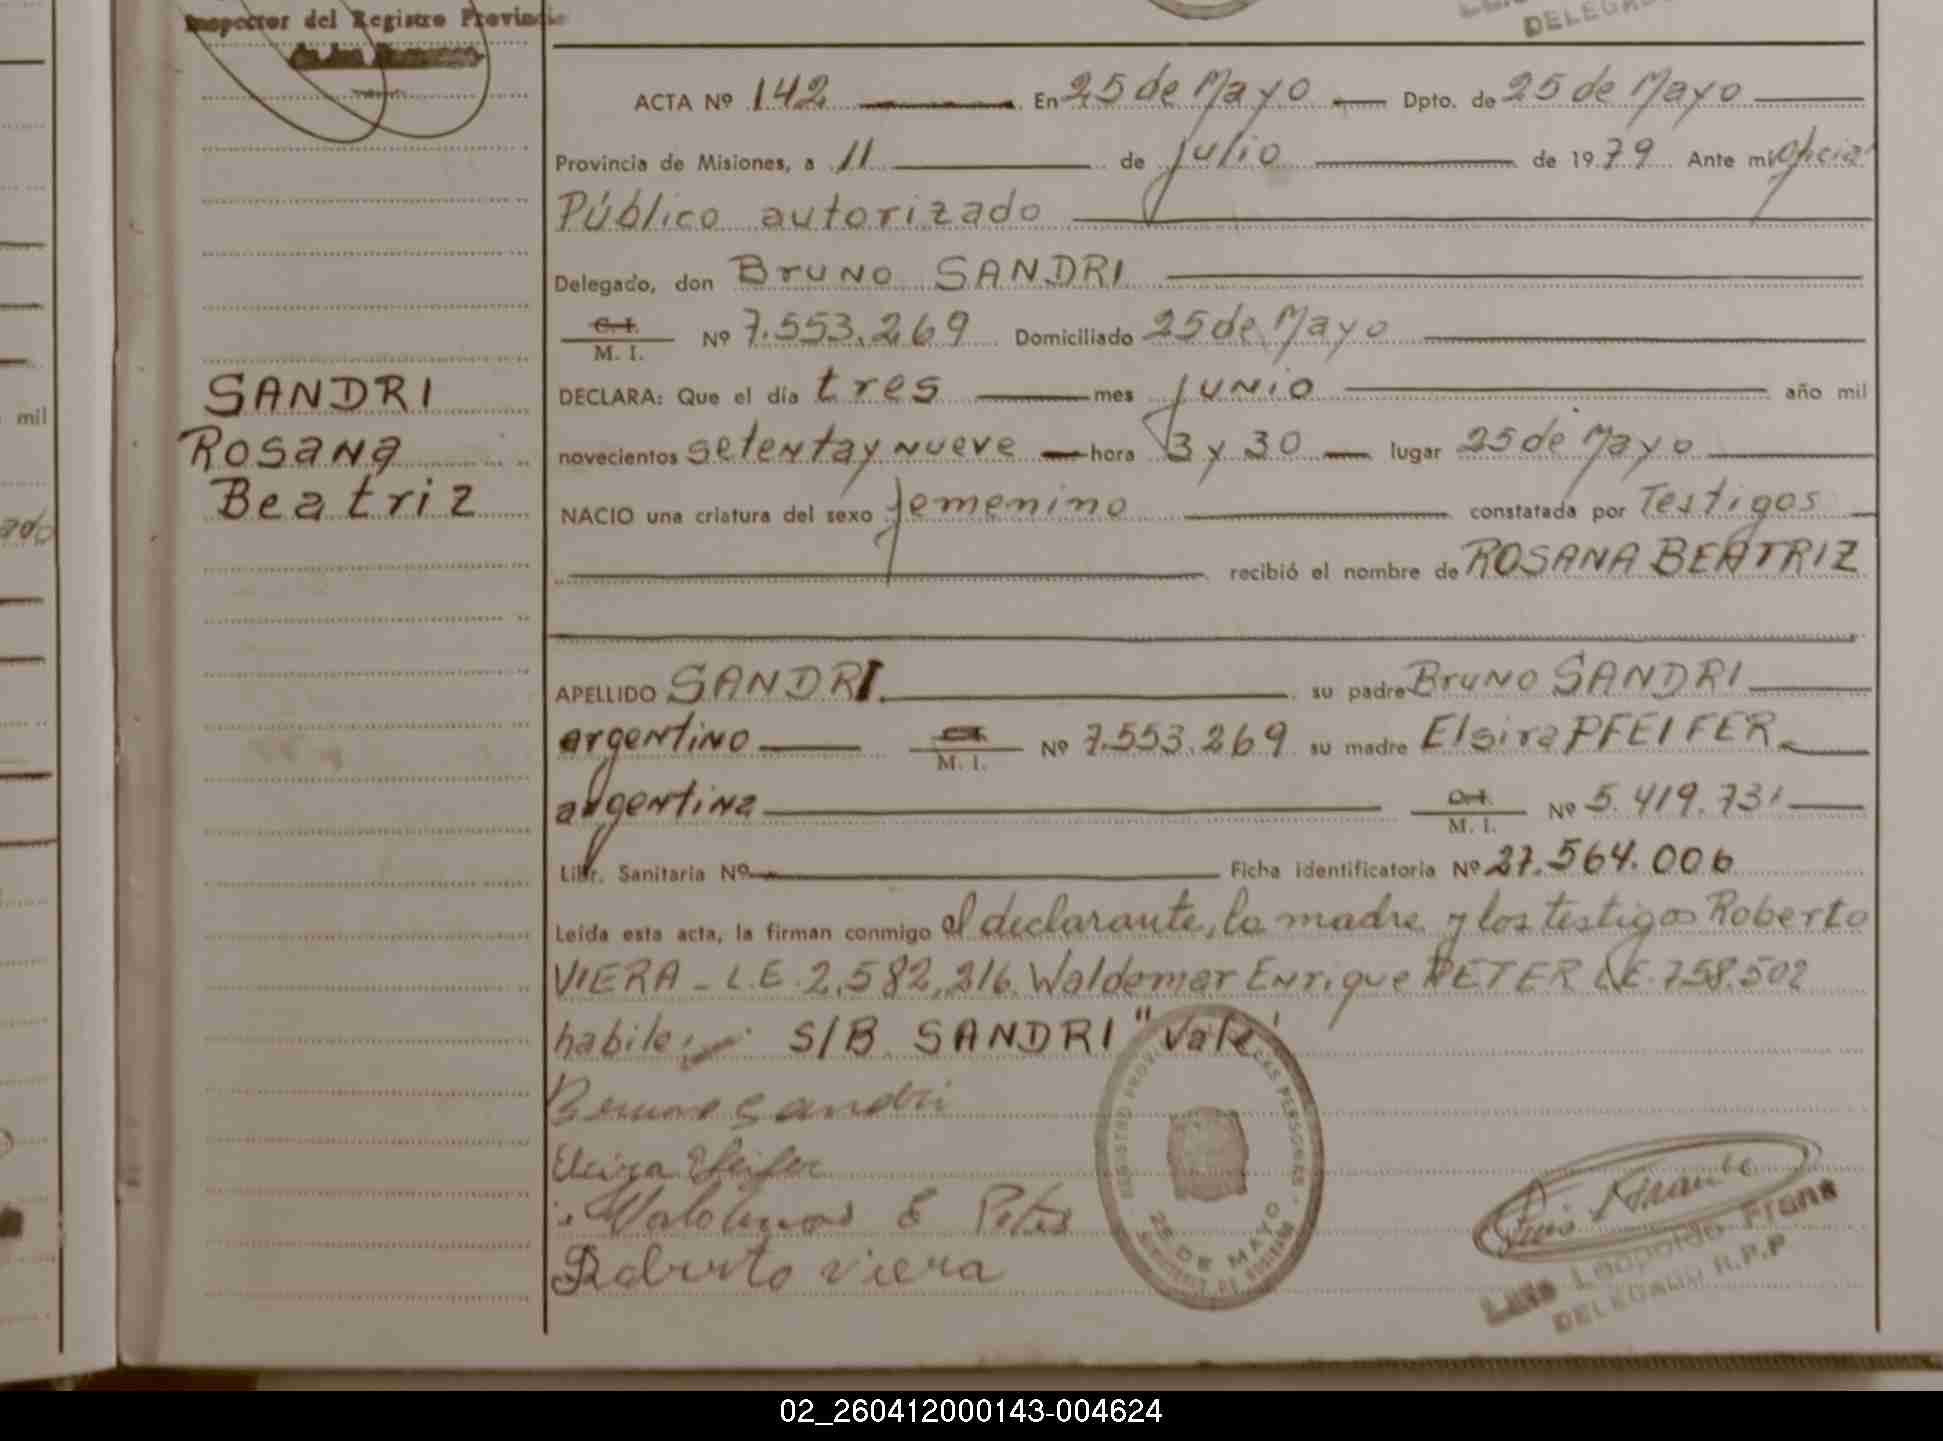 Inspector del Registro Provincia
DELEGAD
ACTA Nº 142 En 25 de Mayo Dpto. de 25 de Mayo
Provincia de Misiones, a 11 de julio de 1979 Ante mi oficial
Público autorizado
Delegado, don Bruno SANDRI
C. I.
M. I. Nº 7.553.269 Domiciliado 25 de Mayo
DECLARA: Que el día tres mes junio año mil
novecientos setenta y nueve hora 3 y 30 lugar 25 de Mayo
NACIO una criatura del sexo femenino constatada por Testigos
recibió el nombre de ROSANA BEATRIZ
SANDRI
Rosana
Beatriz
APELLIDO SANDRI su padre Bruno SANDRI
argentino M. I. Nº 7.553.269 su madre Elsira PFEIFER
argentina C. I. M. I. Nº 5.419.731
Libr. Sanitaria Nº Ficha identificatoria Nº 27.564.006
Leída esta acta, la firman conmigo el declarante, la madre y los testigos Roberto
VIERA - L.E. 2.582.216. Waldemar Enrique PETER L.E. 758.502
habile S/B SANDRI "Vale"
Bruno Sandri
Elsira Pfeifer
Waldemar E Peter
Roberto viera
REGISTRO PROV. LAS PERSONAS
25 DE MAYO
Luis Leopoldo Franz
DELEGADO R.P.P
mil
ado
02_260412000143-004624